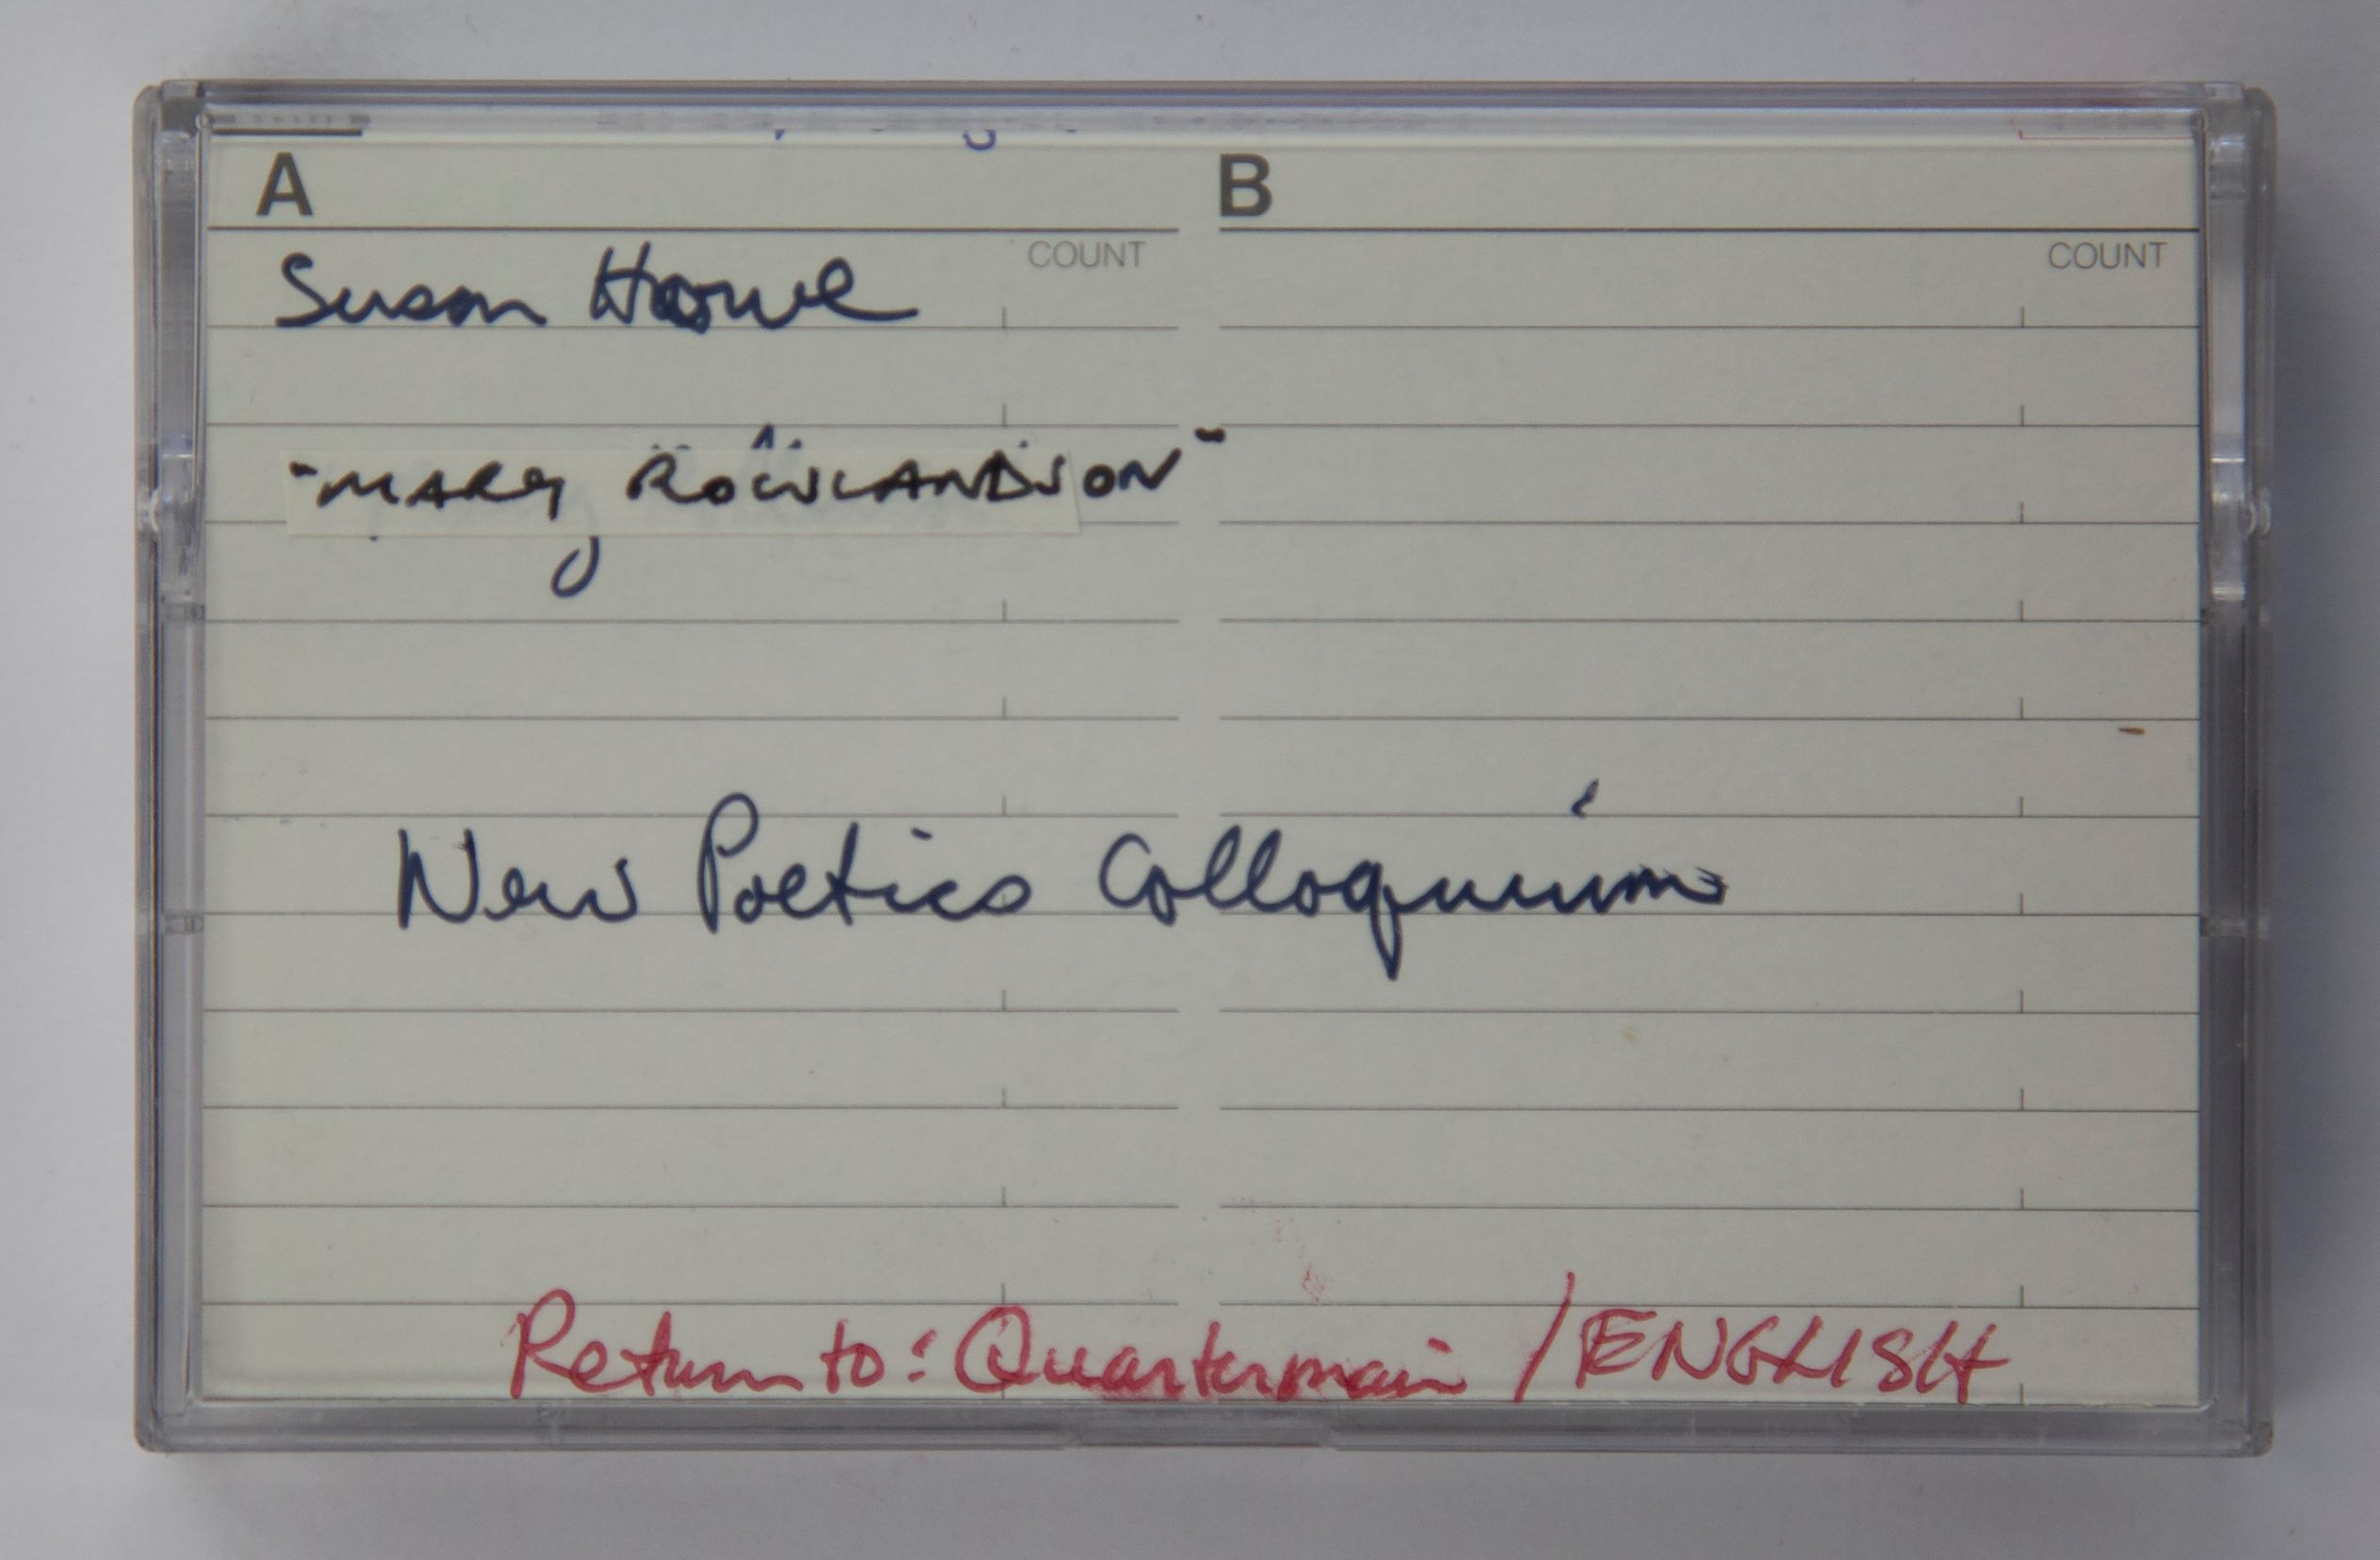 A B
COUNT COUNT
Susan Howe
"MARY ROWLANDSON"
New Poetics Colloquium
Return to: Quartermain / ENGLISH